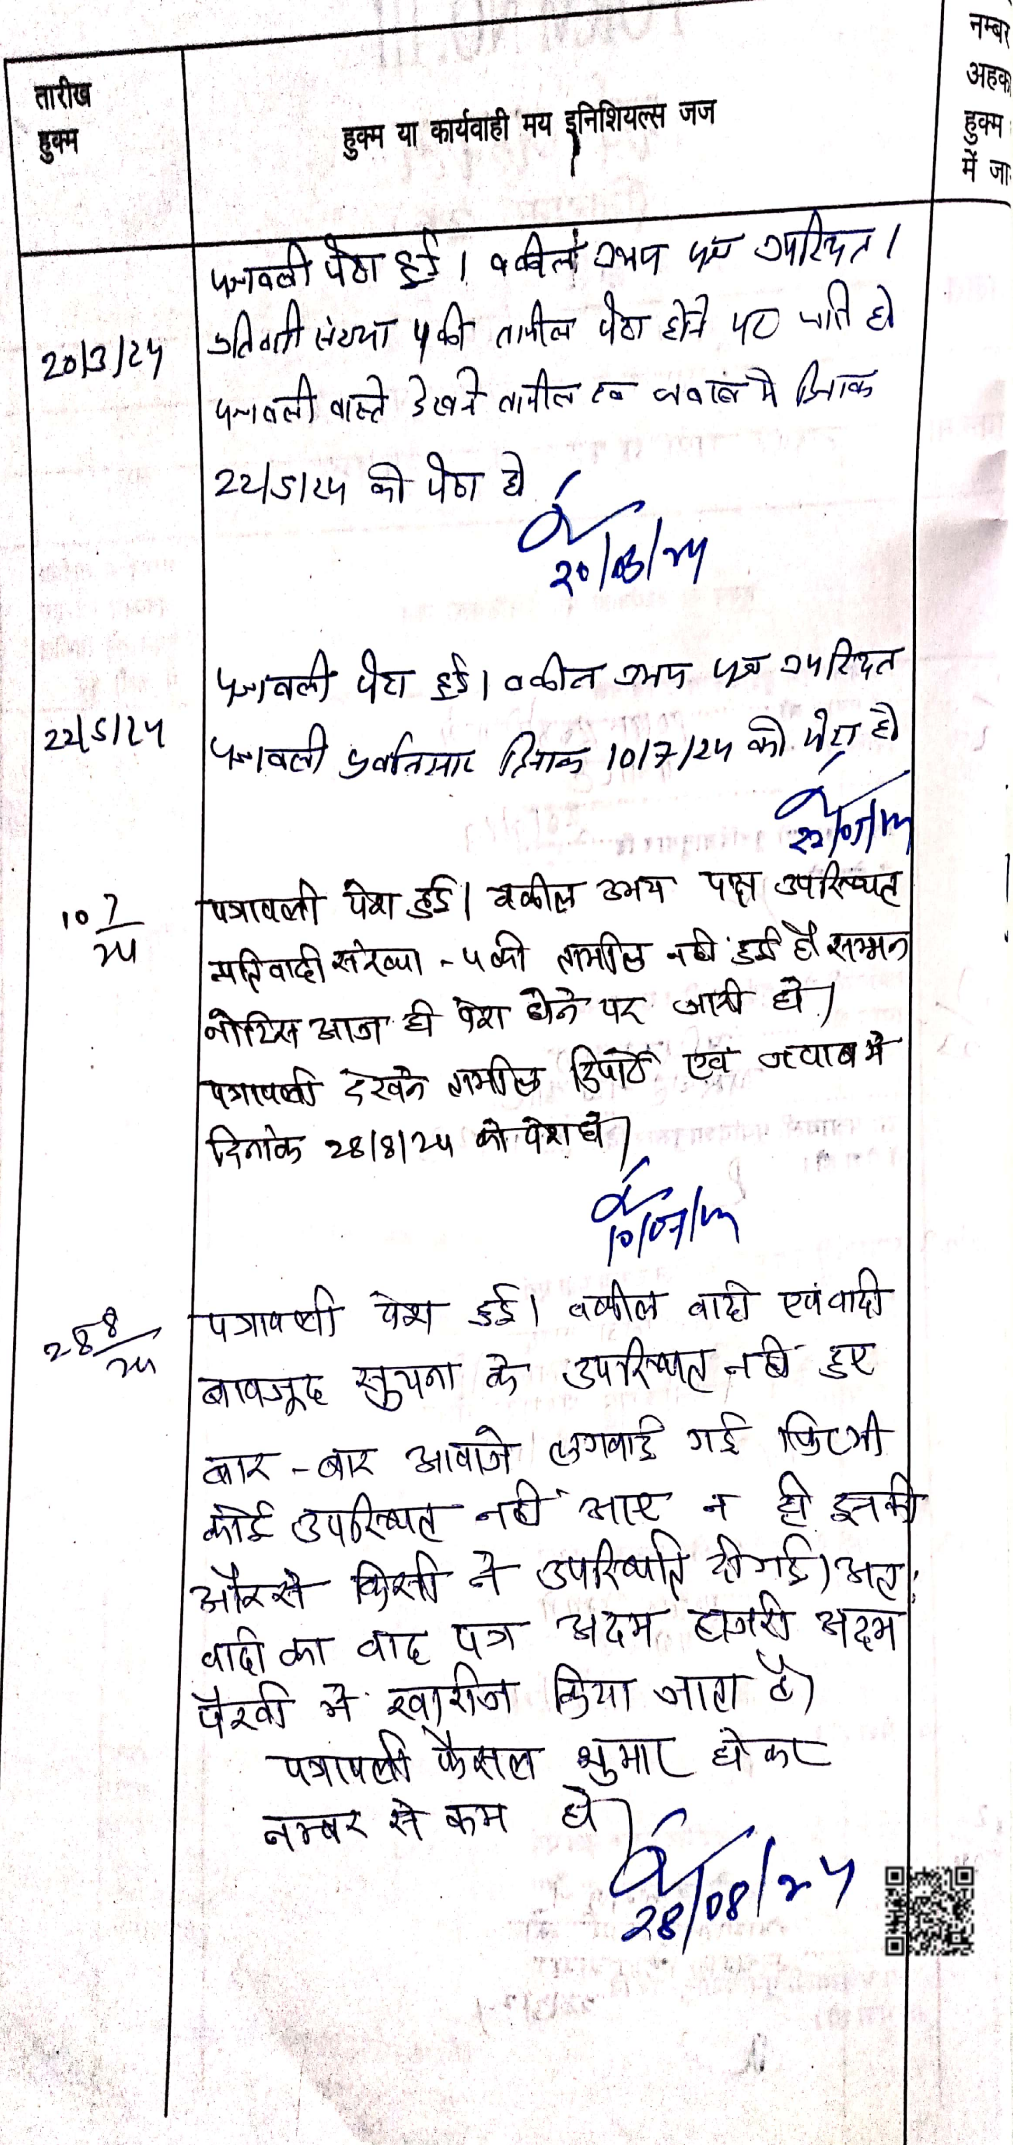 नम्बर
अहक
हुक्म
में जा
तारीख
हुक्म
हुक्म या कार्यवाही मय इनिशियल्स जज
20/3/24
पत्रावली पेश हुई । वकील उभय पक्ष उपस्थित ।
प्रतिवादी संख्या 4 की तामील पेश होने पर जारी हो
पत्रावली वास्ते देखने तामील एवं जवाब में दिनांक
22/5/24 को पेश हो
20/03/24
22/5/24
पत्रावली पेश हुई । वकील उभय पक्ष उपस्थित
पत्रावली पूर्वानुसार दिनांक 10/7/24 को पेश हो
22/05/24
10 7/24
पत्रावली पेश हुई । वकील उभय पक्ष उपस्थित
प्रतिवादी संख्या - 4 की तामील नही हुई है सम्मन
नोटिस आज ही पेश होने पर जारी हो ।
पत्रावली देखने तामील रिपोर्ट एवं जवाब मे
दिनांक 28/8/24 को पेश हो ।
10/07/24
28 8/24
पत्रावली पेश हुई । वकील वादी एवं वादी
बावजूद सुचना के उपस्थित नही हुए
बार - बार आवाजे लगवाई गई फिर भी
कोई उपस्थित नही आए न ही इनकी
और से किसी ने उपस्थिति दी गई । अतः
वादी का वाद पत्र अदम हाजरी अदम
पैरवी मे खारीज किया जाता है ।
पत्रावली फैसल शुमार होकर
नम्बर से कम हो ।
28/08/24